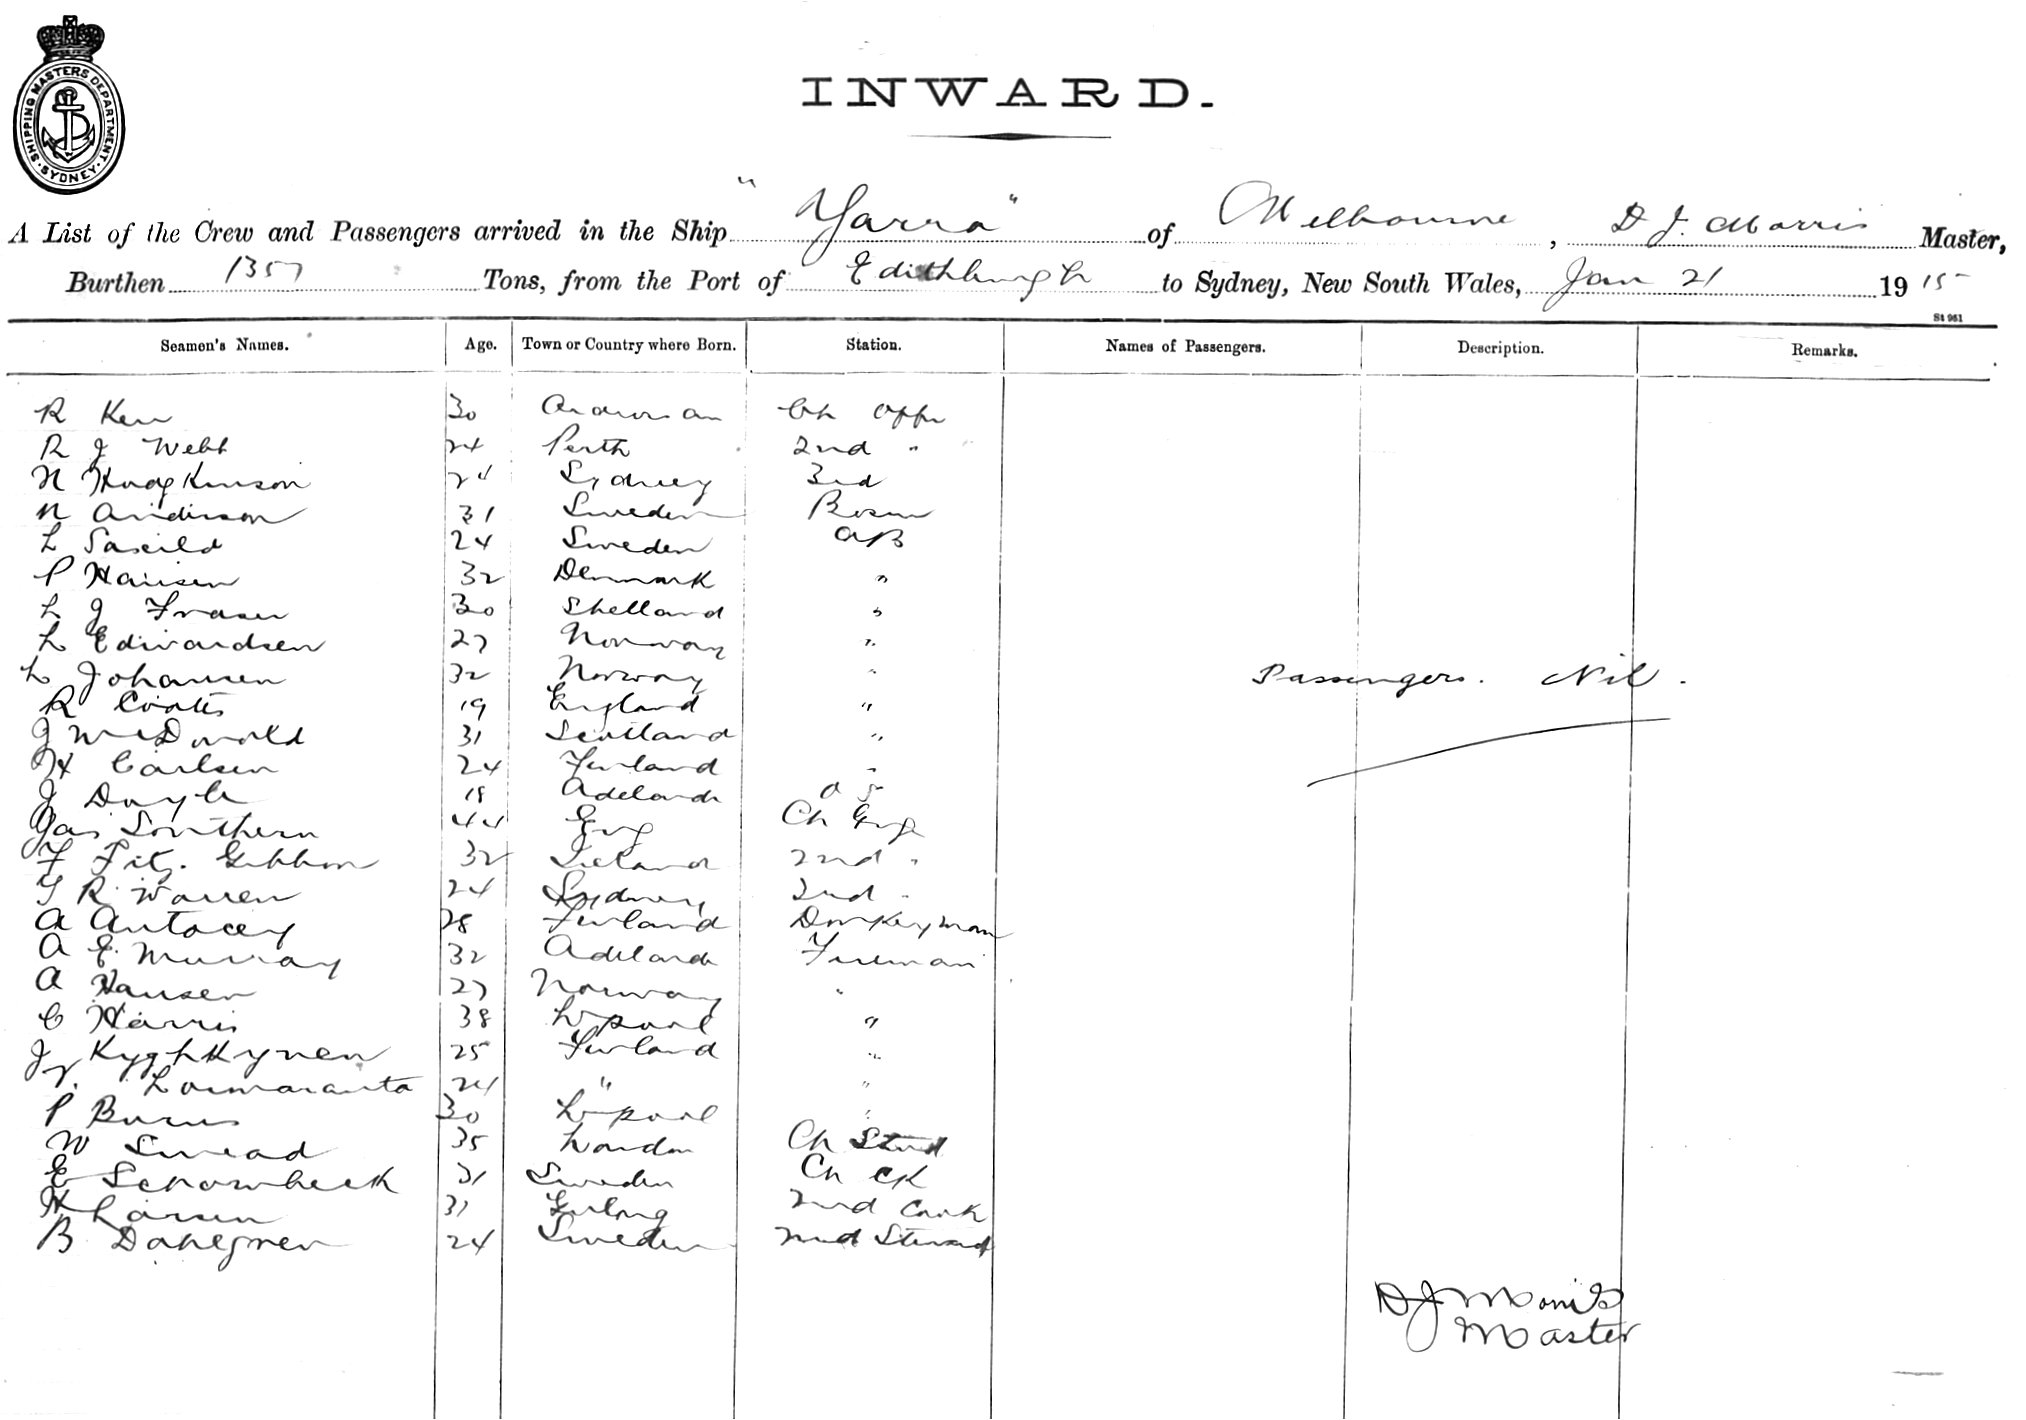 SHIPPING MASTERS DEPARTMENT · SYDNEY ·
INWARD.
A List of the Crew and Passengers arrived in the Ship "Yarra" of Melbourne, D J. Morris Master,
Burthen 1357 Tons, from the Port of Edithburgh to Sydney, New South Wales, Jan 21 1915
St 961
Seamen's Names. Age. Town or Country where Born. Station. Names of Passengers. Description. Remarks.
R Kerr 30 Ardrossan Ch Offr
R J Webb 24 Perth 2nd "
N Hodgkinson 24 Sydney 3rd
N Anderson 31 Sweden Bosun
L Saxild 24 Sweden AB
P Hansen 32 Denmark "
L J Fraser 30 Shetland "
L Edwardsen 27 Norway "
L Johansen 32 Norway "
Passengers. Nil.
R Coates 19 England "
J McDonald 31 Scotland "
H Carlsen 24 Finland "
J Doyle 18 Adelaide O S
Jas Southern 44 Eng Ch Engr
F Fitz. Gibbon 32 Ireland 2nd "
R Warren 24 Sydney "
A 28 Finland Donkeyman
A E. Murray 32 Adelaide Fireman
A Hansen 27 Norway "
C Harris 38 L'pool "
J 25 Finland "
24 " "
P Burns 30 L'pool "
W 35 London Ch Stwd
E 31 Sweden Ch Ck
H Larsen 31 Geelong 2nd Cook
B 24 Sweden 2nd Steward
D J Morris
Master